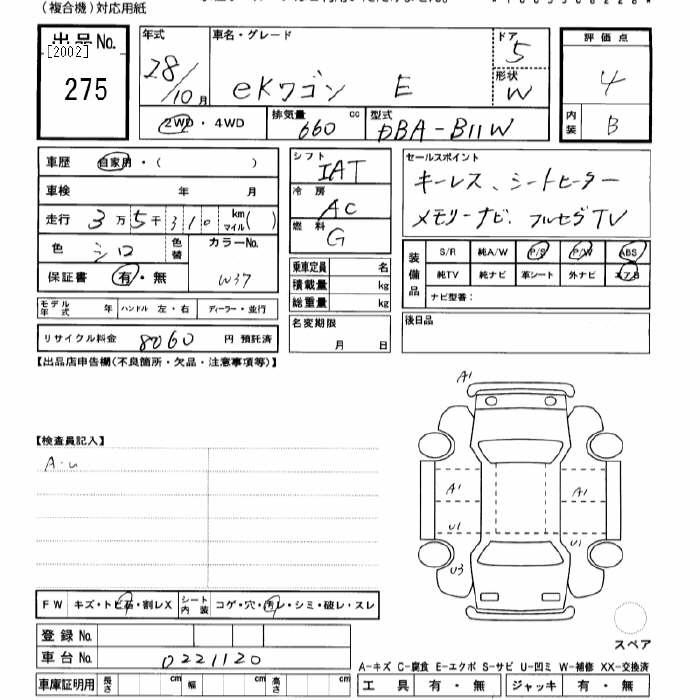 (複合機)対応用紙
出品No.
[2002]
275
年式
28/10月
車名・グレード
eKワゴン E
ドア
5
形状
W
評価点
4
内装
B
2WD・4WD
排気量 660 cc
型式 DBA-B11W
車歴 自家用・( )
車検 年 月
走行 3万5千310 km マイル( )
色 シロ
色替
カラーNo. W37
保証書 有・無
モデル年式 年 ハンドル 左・右 ディーラー・並行
リサイクル料金 8060 円 預託済
シフト IAT
冷房 AC
燃料 G
乗車定員 名
積載量 kg
総重量 kg
名変期限
月 日
セールスポイント
キーレス、シートヒーター
メモリーナビ、フルセグTV
装備品
S/R 純A/W P/S P/W ABS
純TV 純ナビ 革シート 外ナビ エアB
ナビ型番:
後日品
【出品店申告欄(不良箇所・欠品・注意事項等)】
【検査員記入】
A・u
A1
A1
A1
U1
U1
U3
スペア
FW キズ・トビ石・割レX シート内装 コゲ・穴・汚レ・シミ・破レ・スレ
登録No.
車台No. 0221120
車庫証明用 長さ cm 幅 cm 高さ cm
A-キズ C-腐食 E-エクボ S-サビ U-凹ミ W-補修 XX-交換済
工具 有・無 ジャッキ 有・無